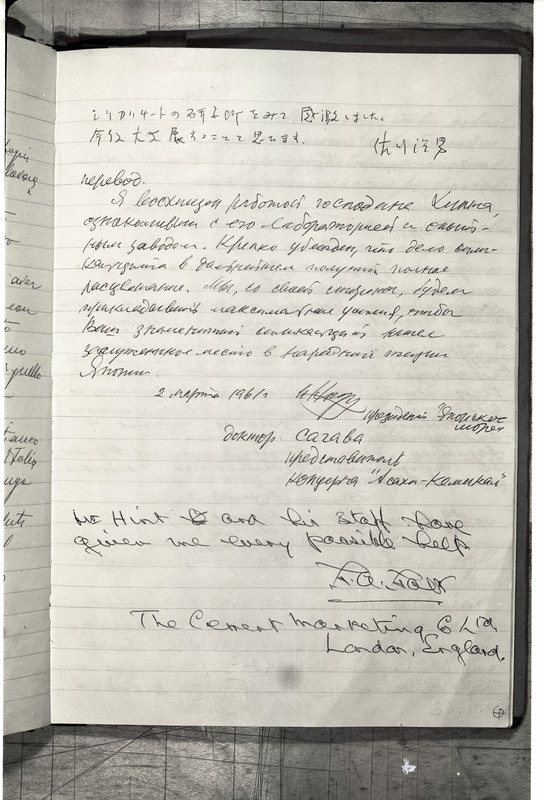 シリカリチートの研究所をみて感激しました。
今後大発展することと思います。
佐川洋男
перевод.
Я восхищен работой господина Хинта,
ознакомившись с его лабораторией и опыт-
ным заводом. Крепко убежден, что дело сили-
кальцита в дальнейшем получит полное
расцветание. Мы, со своей стороны, будем
прикладывать максимальные усилия, чтобы
Ваш знаменитый силикальцит нашел
заслуженное место в народной жизни
Японии.
2 марта 1961 г.
президент "Японское
море"
доктор Сагава
представитель
концерна "Асахи-Кемикал"
Mr Hint and his staff have
given me every possible help
The Cement Marketing Co Ltd
London, England.